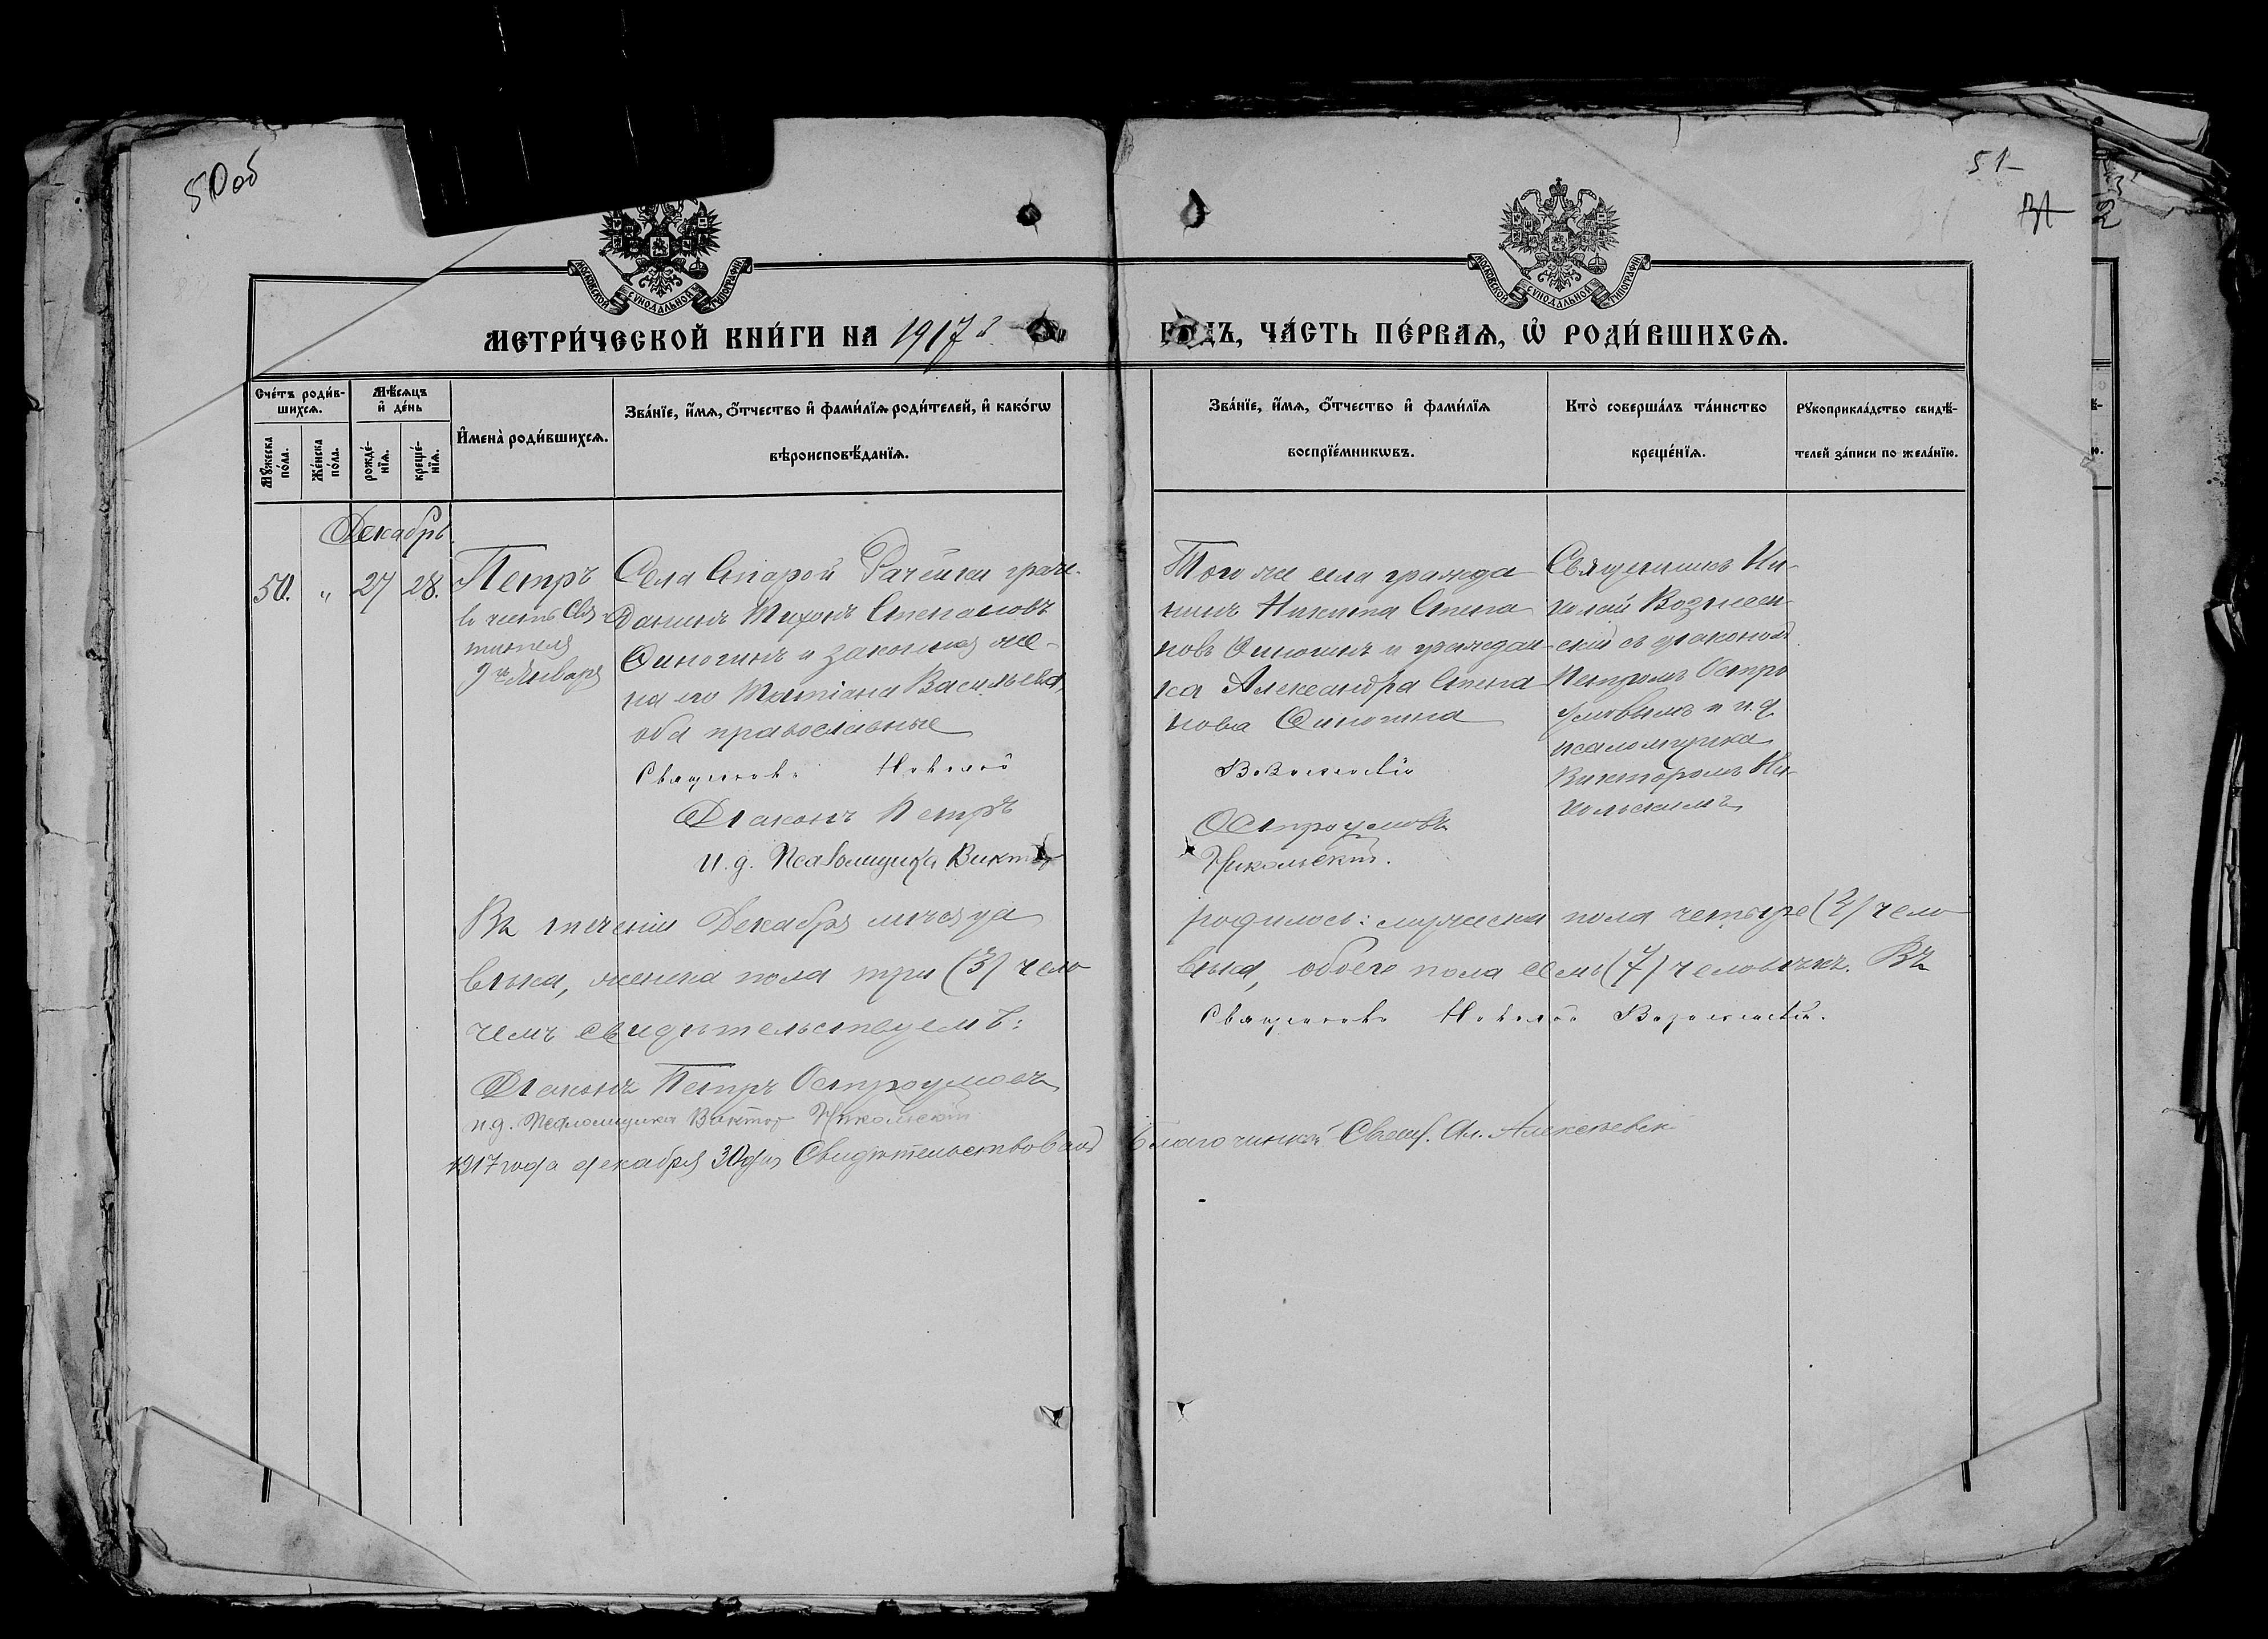 50об
51
МОСКОВСКОЙ СѴНОДАЛЬНОЙ ТИПОГРАФІИ
МОСКОВСКОЙ СѴНОДАЛЬНОЙ ТИПОГРАФІИ
МЕТРИ́ЧЕСКОЙ КНИ́ГИ НА 1917 г. ГОДЪ, ЧА́СТЬ ПЕ́РВАѦ, Ѡ҆ РОДИ́ВШИХСѦ.
Сче́тъ роди́в-
шихсѧ.
Мꙋ́жеска по́ла.
Же́нска по́ла.
Мѣ́сѧцъ и҆ де́нь
рожде́-
нїѧ.
креще́-
нїѧ.
И҆мена̀ роди́вшихсѧ.
Зва́нїе, и҆́мѧ, ѻ҆́тчество и҆ фами́лїѧ роди́телей, и҆ како́гѡ
вѣроисповѣ́данїѧ.
Зва́нїе, и҆́мѧ, ѻ҆́тчество и҆ фами́лїѧ
воспрїе́мникѡвъ.
Кто̀ соверша́лъ та́инство
креще́нїѧ.
Рꙋкоприкла́дство свидѣ́-
телей за́писи по жела́нїю.
Декабрь
50. „ 27 28.
Петръ
въ честь Свя
тителя
9го Января
Села Старой Рачейки граж-
данинъ Тихонъ Степановъ
Синогинъ и законная же-
на его Татіана Васильева,
оба православные
Священникъ Николай
Діаконъ Петръ
и.д. Псаломщика Викторъ
Того же села гражда
нинъ Никита Степа
новъ Синогинъ и граждан-
ка Александра Степа
нова Синогина
Вознесенскій
Остроумовъ
Никольскій.
Священникъ Ни-
колай Вознесен-
скій съ діакономъ
Петромъ Остро
умовымъ и и.д.
псаломщика
Викторомъ Ни-
кольскимъ
Въ теченіи Декабря мѣсяца родилось: мужеска пола четыре (4) чело
вѣка, женска пола три (3) чело вѣка, обоего пола семь (7) человѣкъ. Въ
чемъ свидѣтельствуемъ:
Священникъ Николай Вознесенскій.
Діаконъ Петръ Остроумовъ
и.д. Псаломщика Викторъ Никольскій
1917 года декабря 30 дня Свидѣтельствовалъ Благочинный Свящ. Ал. Алексѣевск